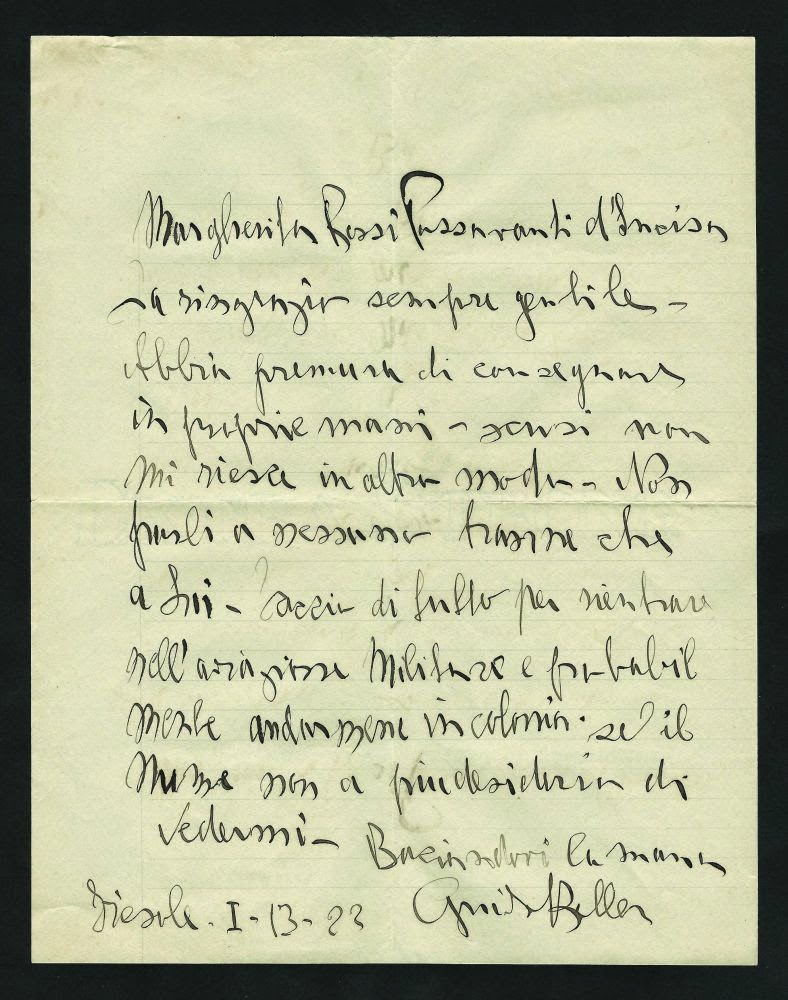 Margherita Rossi Passavanti d'Incisa
La ringrazio sempre gentile -
Abbia premura di consegnare
in proprie mani - scusi non
mi riesce in altro modo - Non
parli a nessuno tranne che
a Lui - Faccio di tutto per rientrare
nell'aviazione Militare e probabil
mente andarmene in colonia. se il
non a piu desiderio di
vedermi -
Baciandovi la mano
Fiesole. I - 13 - 23 Guido Keller